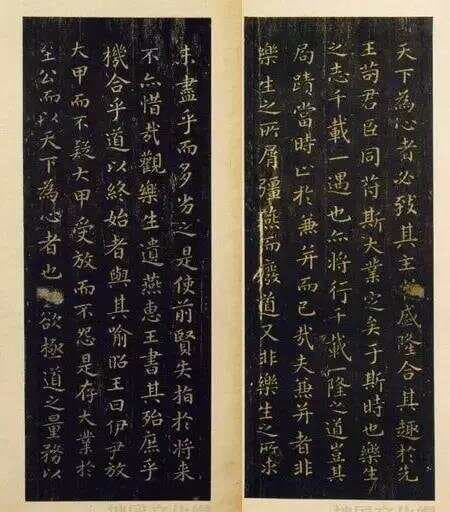 未盡乎而多劣之是使前賢失指於將来
不亦惜哉觀樂生遺燕惠王書其殆庶乎
機合乎道以終始者與其喻昭王曰伊尹放
大甲而不疑大甲受放而不怨是存大業於
至公而以天下為心者也欲極道之量務以
天下為心者必致其主盛隆合其趣於先
王苟君臣同苻斯大業定矣于斯時也樂生
之志千載一遇也亦將行千載一隆之道豈其
局蹟當時止於兼并而已哉夫兼并者非
樂生之所屑彊燕而廢道又非樂生之所求